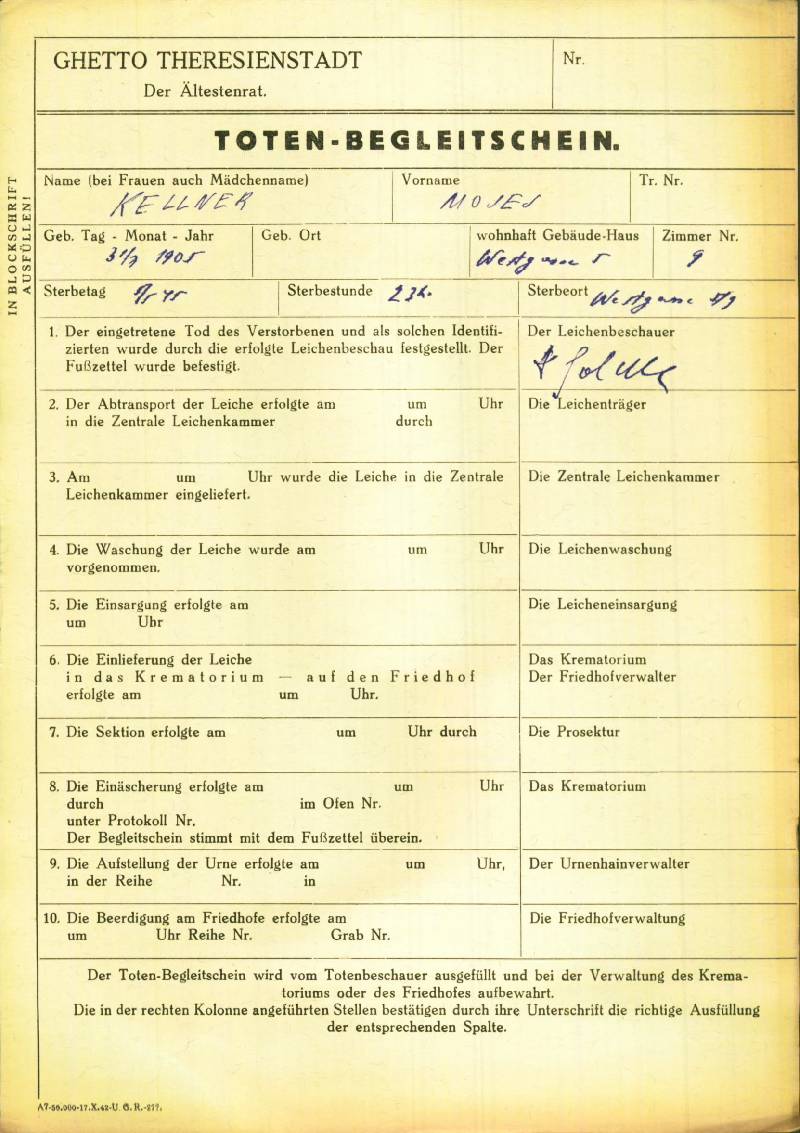 GHETTO THERESIENSTADT
Der Ältestenrat.
Nr.
TOTEN-BEGLEITSCHEIN.
IN BLOCKSCHRIFT
AUSFÜLLEN!
Name (bei Frauen auch Mädchenname)
KELLNER
Vorname
MOSES
Tr. Nr.
Geb. Tag - Monat - Jahr
1905
Geb. Ort
wohnhaft Gebäude-Haus
Westgasse 5
Zimmer Nr.
9
Sterbetag
45
Sterbestunde
Sterbeort Westgasse 5/9
1. Der eingetretene Tod des Verstorbenen und als solchen Identifi-
zierten wurde durch die erfolgte Leichenbeschau festgestellt. Der
Fußzettel wurde befestigt.
Der Leichenbeschauer
2. Der Abtransport der Leiche erfolgte am um Uhr
in die Zentrale Leichenkammer durch
Die Leichenträger
3. Am um Uhr wurde die Leiche in die Zentrale
Leichenkammer eingeliefert.
Die Zentrale Leichenkammer
4. Die Waschung der Leiche wurde am um Uhr
vorgenommen.
Die Leichenwaschung
5. Die Einsargung erfolgte am
um Uhr
Die Leicheneinsargung
6. Die Einlieferung der Leiche
in das Krematorium — auf den Friedhof
erfolgte am um Uhr.
Das Krematorium
Der Friedhofverwalter
7. Die Sektion erfolgte am um Uhr durch
Die Prosektur
8. Die Einäscherung erfolgte am um Uhr
durch im Ofen Nr.
unter Protokoll Nr.
Der Begleitschein stimmt mit dem Fußzettel überein.
Das Krematorium
9. Die Aufstellung der Urne erfolgte am um Uhr,
in der Reihe Nr. in
Der Urnenhainverwalter
10. Die Beerdigung am Friedhofe erfolgte am
um Uhr Reihe Nr. Grab Nr.
Die Friedhofverwaltung
Der Toten-Begleitschein wird vom Totenbeschauer ausgefüllt und bei der Verwaltung des Krema-
toriums oder des Friedhofes aufbewahrt.
Die in der rechten Kolonne angeführten Stellen bestätigen durch ihre Unterschrift die richtige Ausfüllung
der entsprechenden Spalte.